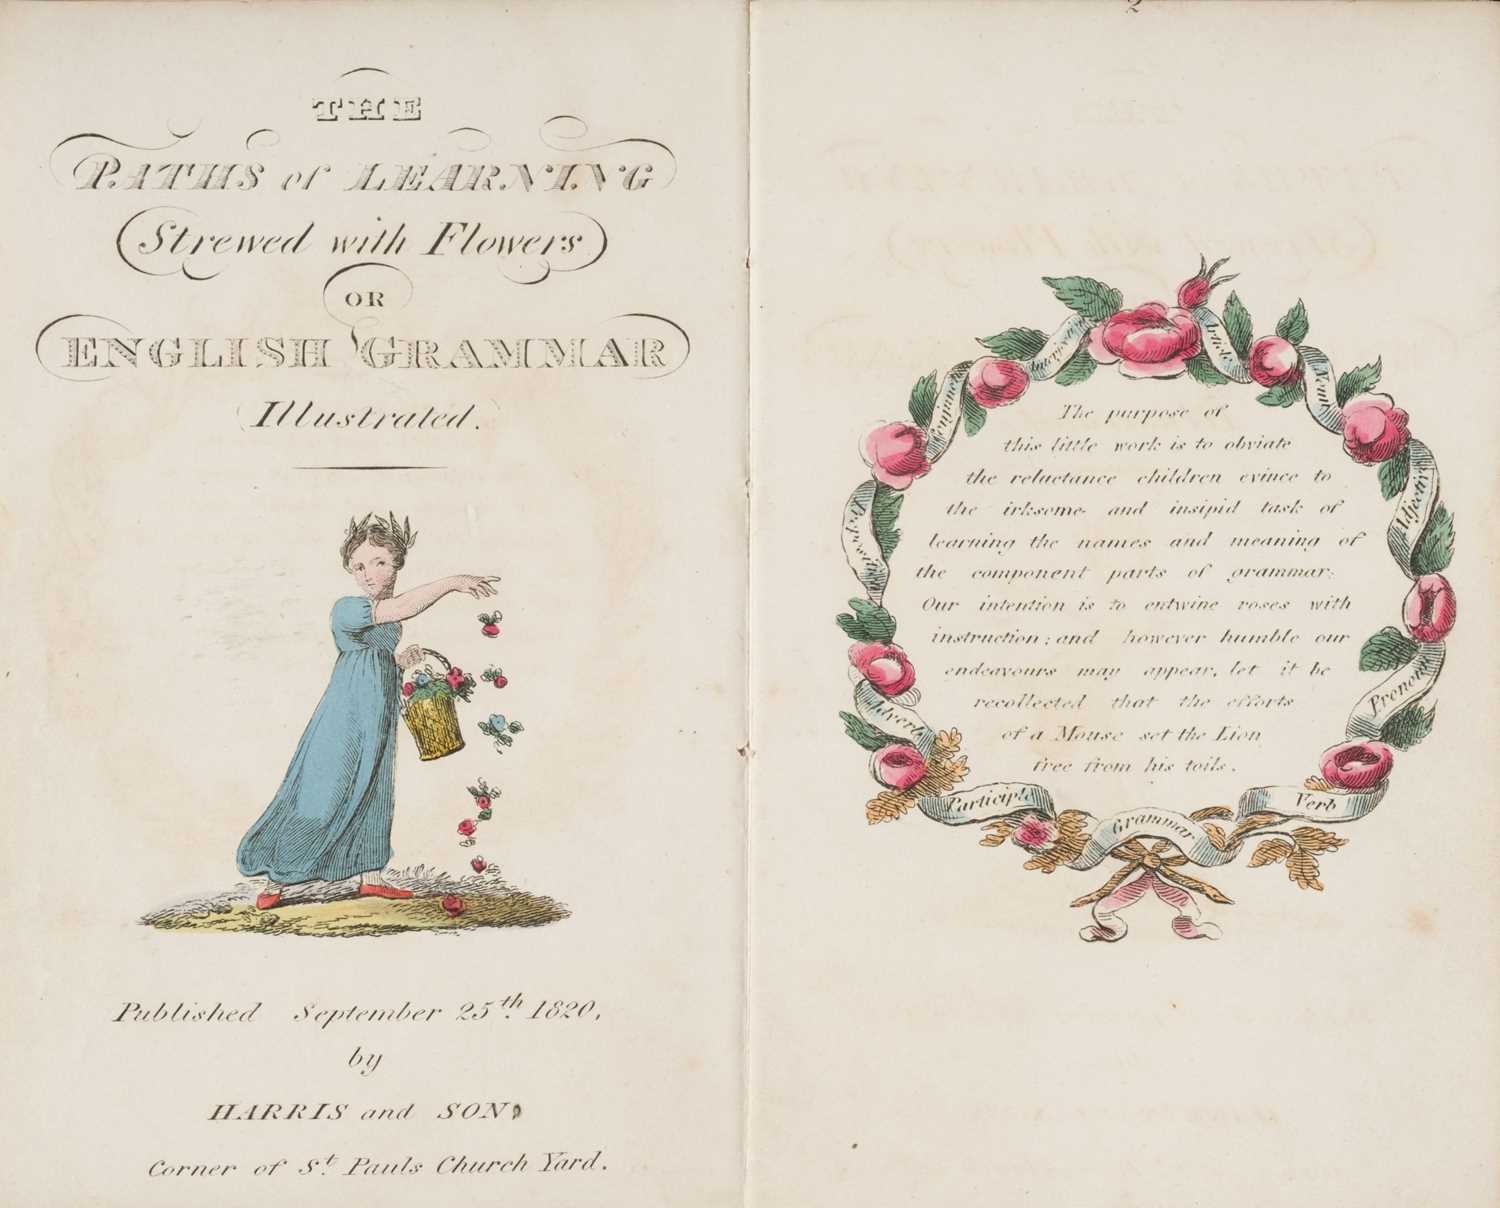 THE
PATHS of LEARNING
Strewed with Flowers
OR
ENGLISH GRAMMAR
Illustrated.
Published September 25th. 1820,
by
HARRIS and SON,
Corner of St. Pauls Church Yard.
2
The purpose of
this little work is to obviate
the reluctance children evince to
the irksome and insipid task of
learning the names and meaning of
the component parts of grammar:
Our intention is to entwine roses with
instruction; and however humble our
endeavours may appear, let it be
recollected that the efforts
of a Mouse set the Lion
free from his toils.
Article
Noun
Adjective
Pronoun
Verb
Grammar
Participle
Adverb
Preposition
Conjunction
Interjection